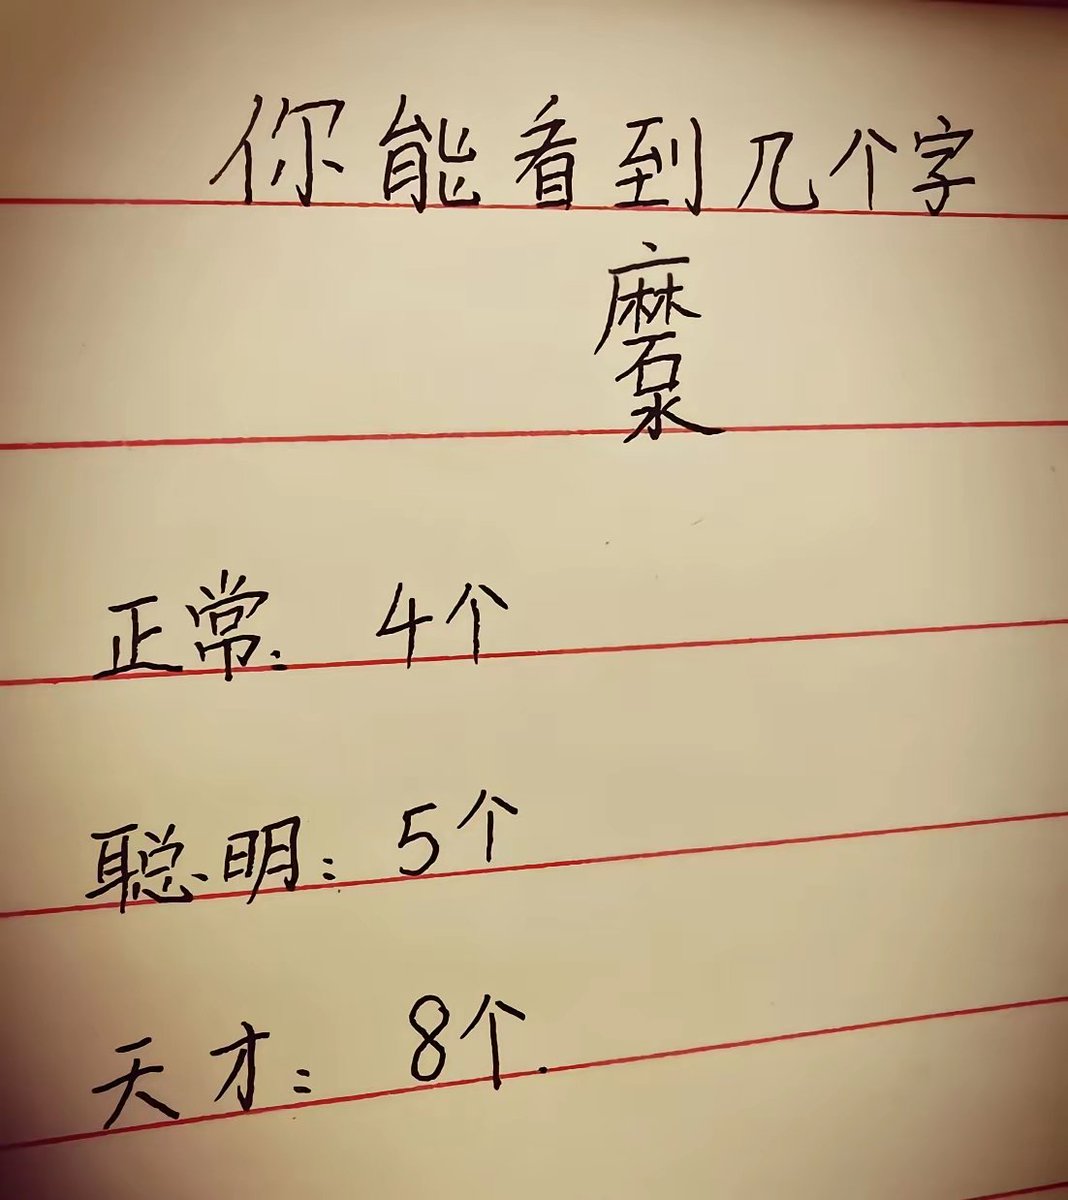 你能看到几个字
磨水
正常: 4个
聪明: 5个
天才: 8个.